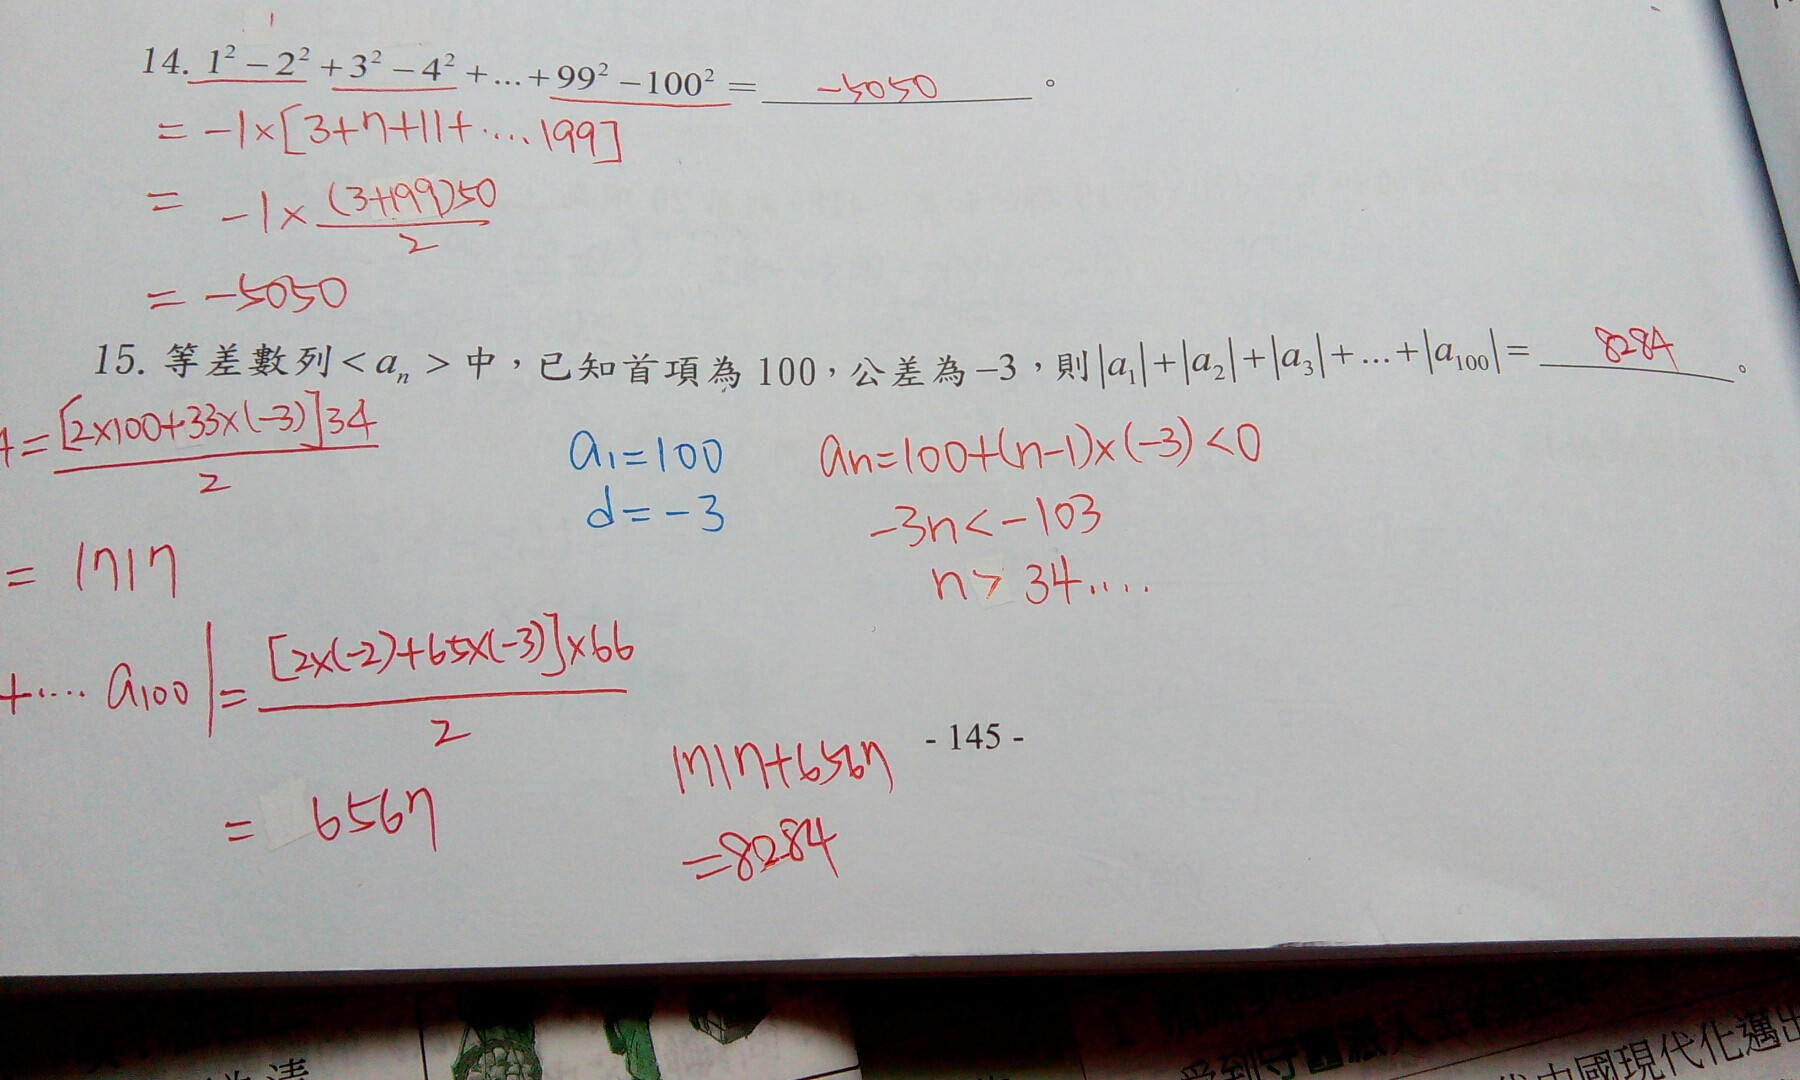 14. 1² − 2² + 3² − 4² + ... + 99² − 100² = -5050 。
= -1×[3+7+11+....199]
= -1× (3+199)50 / 2
= -5050
15. 等差數列 < aₙ > 中，已知首項為 100，公差為 −3，則 |a₁| + |a₂| + |a₃| + ... + |a₁₀₀| = 8284 。
= [2×100+33×(-3)]34 / 2
= 1717
a₁=100
d=-3
an=100+(n-1)×(-3)<0
-3n<-103
n> 34....
+.... a₁₀₀ | = [2×(-2)+65×(-3)]×66 / 2
= 6567
1717+6567
=8284
- 145 -
中國現代化邁出